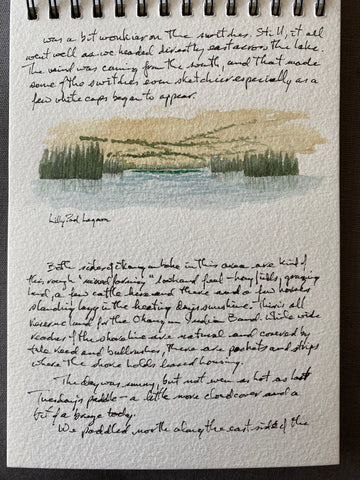 was a bit wonkier on the switches. Still, it all
went well as we headed directly east across the lake.
The wind was coming from the south, and that made
some of the switches even sketchier especially as a
few white caps began to appear.
Lilly Pad Lagoon
Both sides of Okanagan Lake in this area are kind of
this rough "mixed farming" look and feel - hay fields, grazing
land, a few cattle here and there and a few horses
standing lazy in the heating day's sunshine. This is all
reserve land for the Okanagan Indian Band. While wide
reaches of the shoreline are natural and covered by
tule reed and bullrushes, there are pockets and strips
where the shore holds leased housing.
The day was sunny, but not even as hot as last
Tuesday's paddle - a little more cloud cover and a
bit of a breeze today.
We paddled north along the east side of the